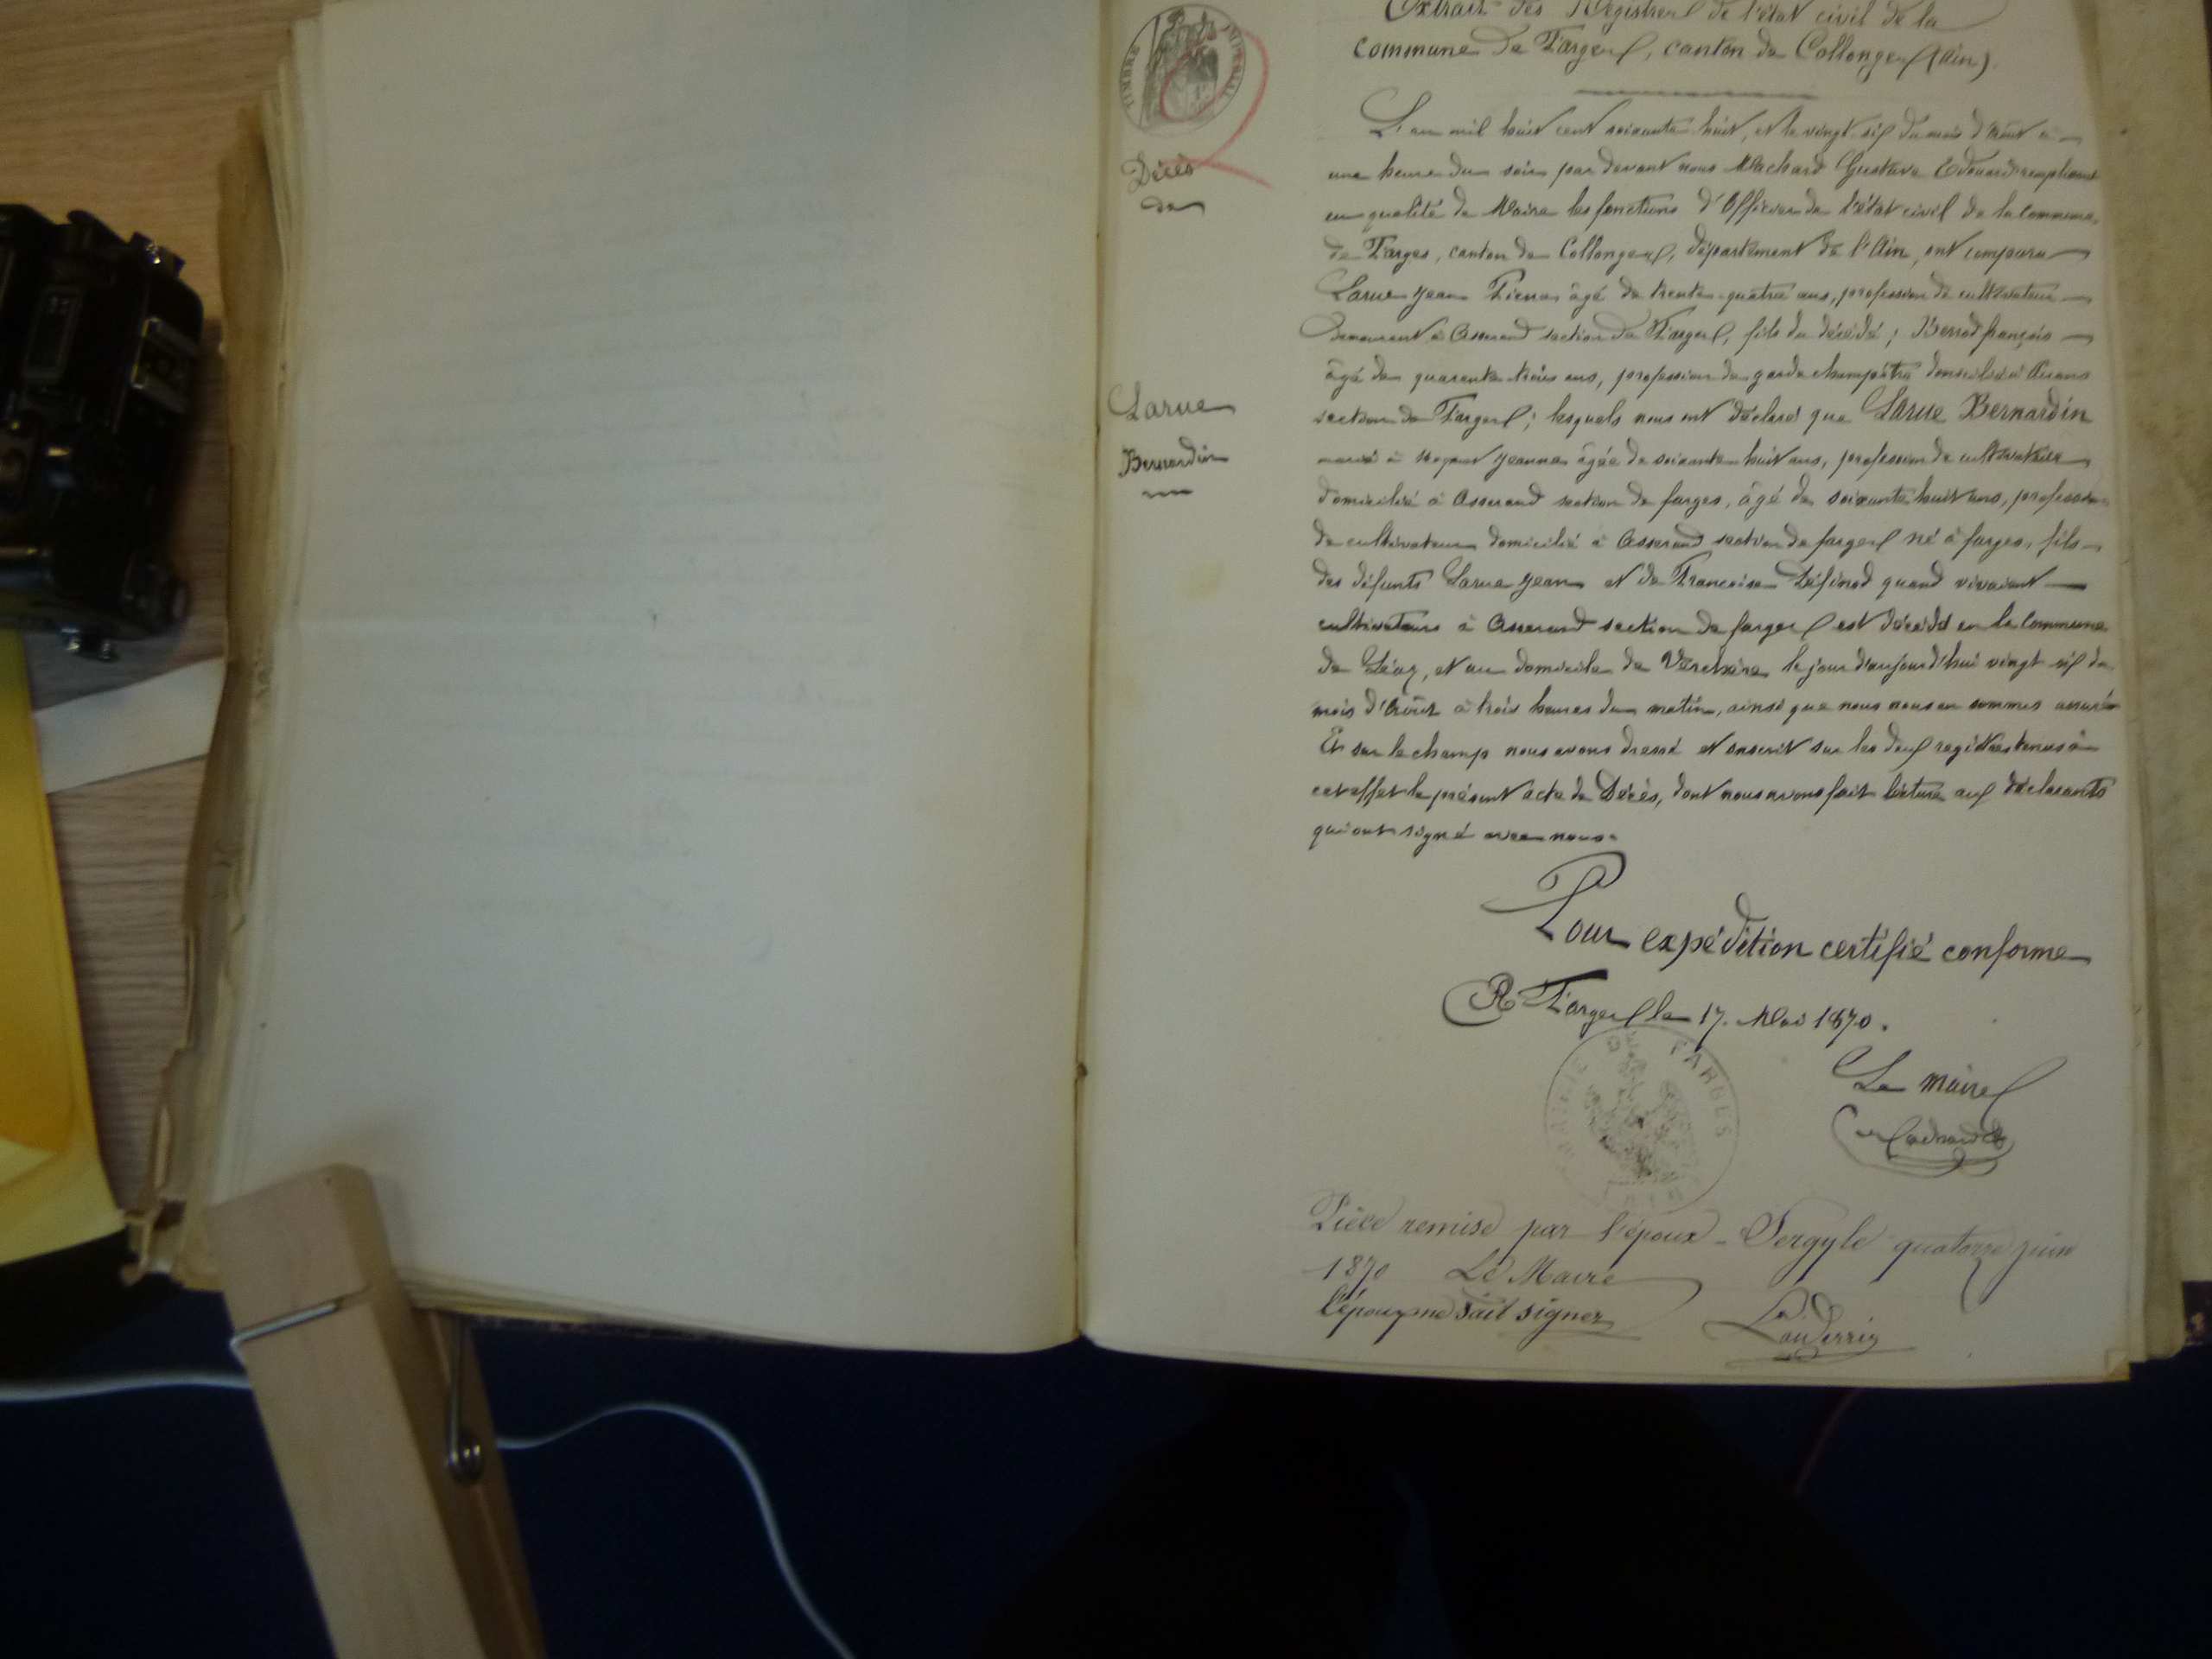 Extrait des Registres de l'état civil de la
commune de Farges, canton de Collonges (Ain).
TIMBRE IMPERIAL
Décès
de
Larue
Bernardin
L'an mil huit cent soixante huit, et le vingt six du mois d'Août à
une heure du soir par devant nous Machard Gustave Edouard remplissant
en qualité de Maire les fonctions d'Officier de l'état civil de la Commune
de Farges, canton de Collonges, département de l'Ain, ont comparu
Larue Jean Pierre âgé de trente-quatre ans, profession de cultivateur
demeurant à Asserand section de Farges, fils du décédé; Berrod françois
âgé de quarante trois ans, profession de garde champêtre domicilié à
section de Farges; lesquels nous ont déclaré que Larue Bernardin
marié à Jeanne âgée de soixante huit ans, profession de cultivatrice
domicilié à Asserand section de farges, âgé de soixante huit ans, profession
de cultivateur domicilié à Asserand section de farges né à farges, fils
des défunts Larue Jean et de Françoise quand vivaient
cultivateurs à Asserand section de farges est décédé en la commune
de Léaz, et au domicile de Verchère le jour d'aujourd'hui vingt six du
mois d'Août à trois heures du matin, ainsi que nous nous en sommes assuré
Et sur le champ nous avons dressé et inscrit sur les deux registres tenus à
cet effet le présent acte de Décès, dont nous avons fait lecture aux déclarants
qui ont signé avec nous.
Pour expédition certifié conforme
A Farges le 17. Mai 1870.
MAIRIE FARGES
Le maire
Machard
Pièce remise par l'époux - Sergyle quatorze juin
1870 Le Maire
l'époux ne sait signer